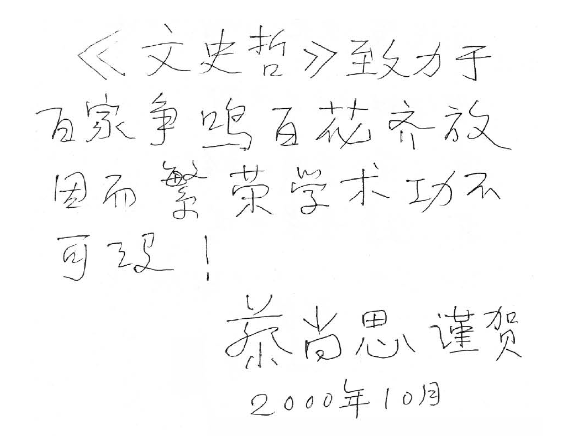 《文史哲》致力于
百家争鸣百花齐放
因而繁荣学术功不
可没！
蔡尚思 谨贺
2000年10月